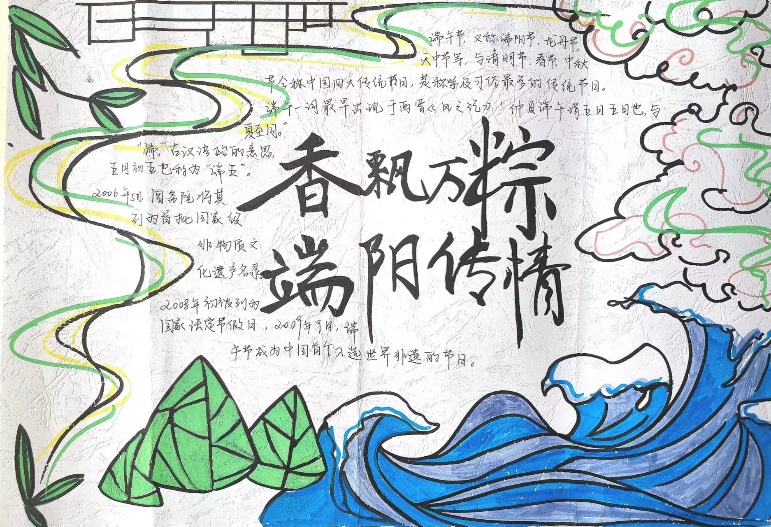 端午节，又称端阳节、龙舟节
天中节等，与清明节、春节、中秋
节合称中国四大传统节日，是称呼及习俗最多的传统节日。
端午一词最早出现于西晋《风土记》：仲夏端午谓五月五日也，与
夏至同。
"端"，古汉语的意思
五月初五也称为"端五"。
2006年5月 国务院将其
列为首批国家级
非物质文
化遗产名录
2008年 列为
国家法定节假日，2009年9月，端
午节成为中国首个入选世界非遗的节日。
香飘万粽
端阳传情